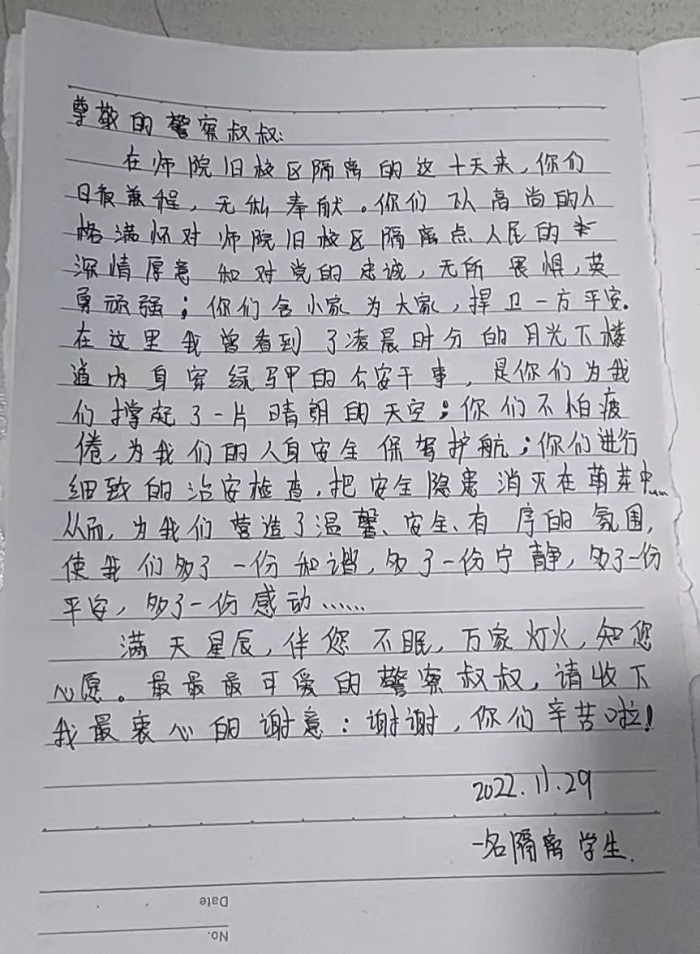 尊敬的警察叔叔:
在师院旧校区隔离的这十天来,你们
日夜兼程,无私奉献。你们以高尚的人
格满怀对师院旧校区隔离点人民的
深情厚意和对党的忠诚,无所畏惧,英
勇顽强;你们舍小家为大家,捍卫一方平安.
在这里我曾看到了凌晨时分的月光下楼
道内身穿绿马甲的公安干事,是你们为我
们撑起了一片晴朗的天空;你们不怕疲
倦,为我们的人身安全保驾护航;你们进行
细致的治安检查,把安全隐患消灭在萌芽中……
从而,为我们营造了温馨、安全、有序的氛围,
使我们多了一份和谐,多了一份宁静,多了一份
平安,多了一份感动……
满天星辰,伴您不眠,万家灯火,知您
心愿。最最最可爱的警察叔叔,请收下
我最衷心的谢意:谢谢,你们辛苦啦!
2022.11.29
一名隔离学生.
Date
No.